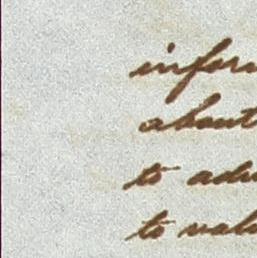 infor
about
to adv
to valu